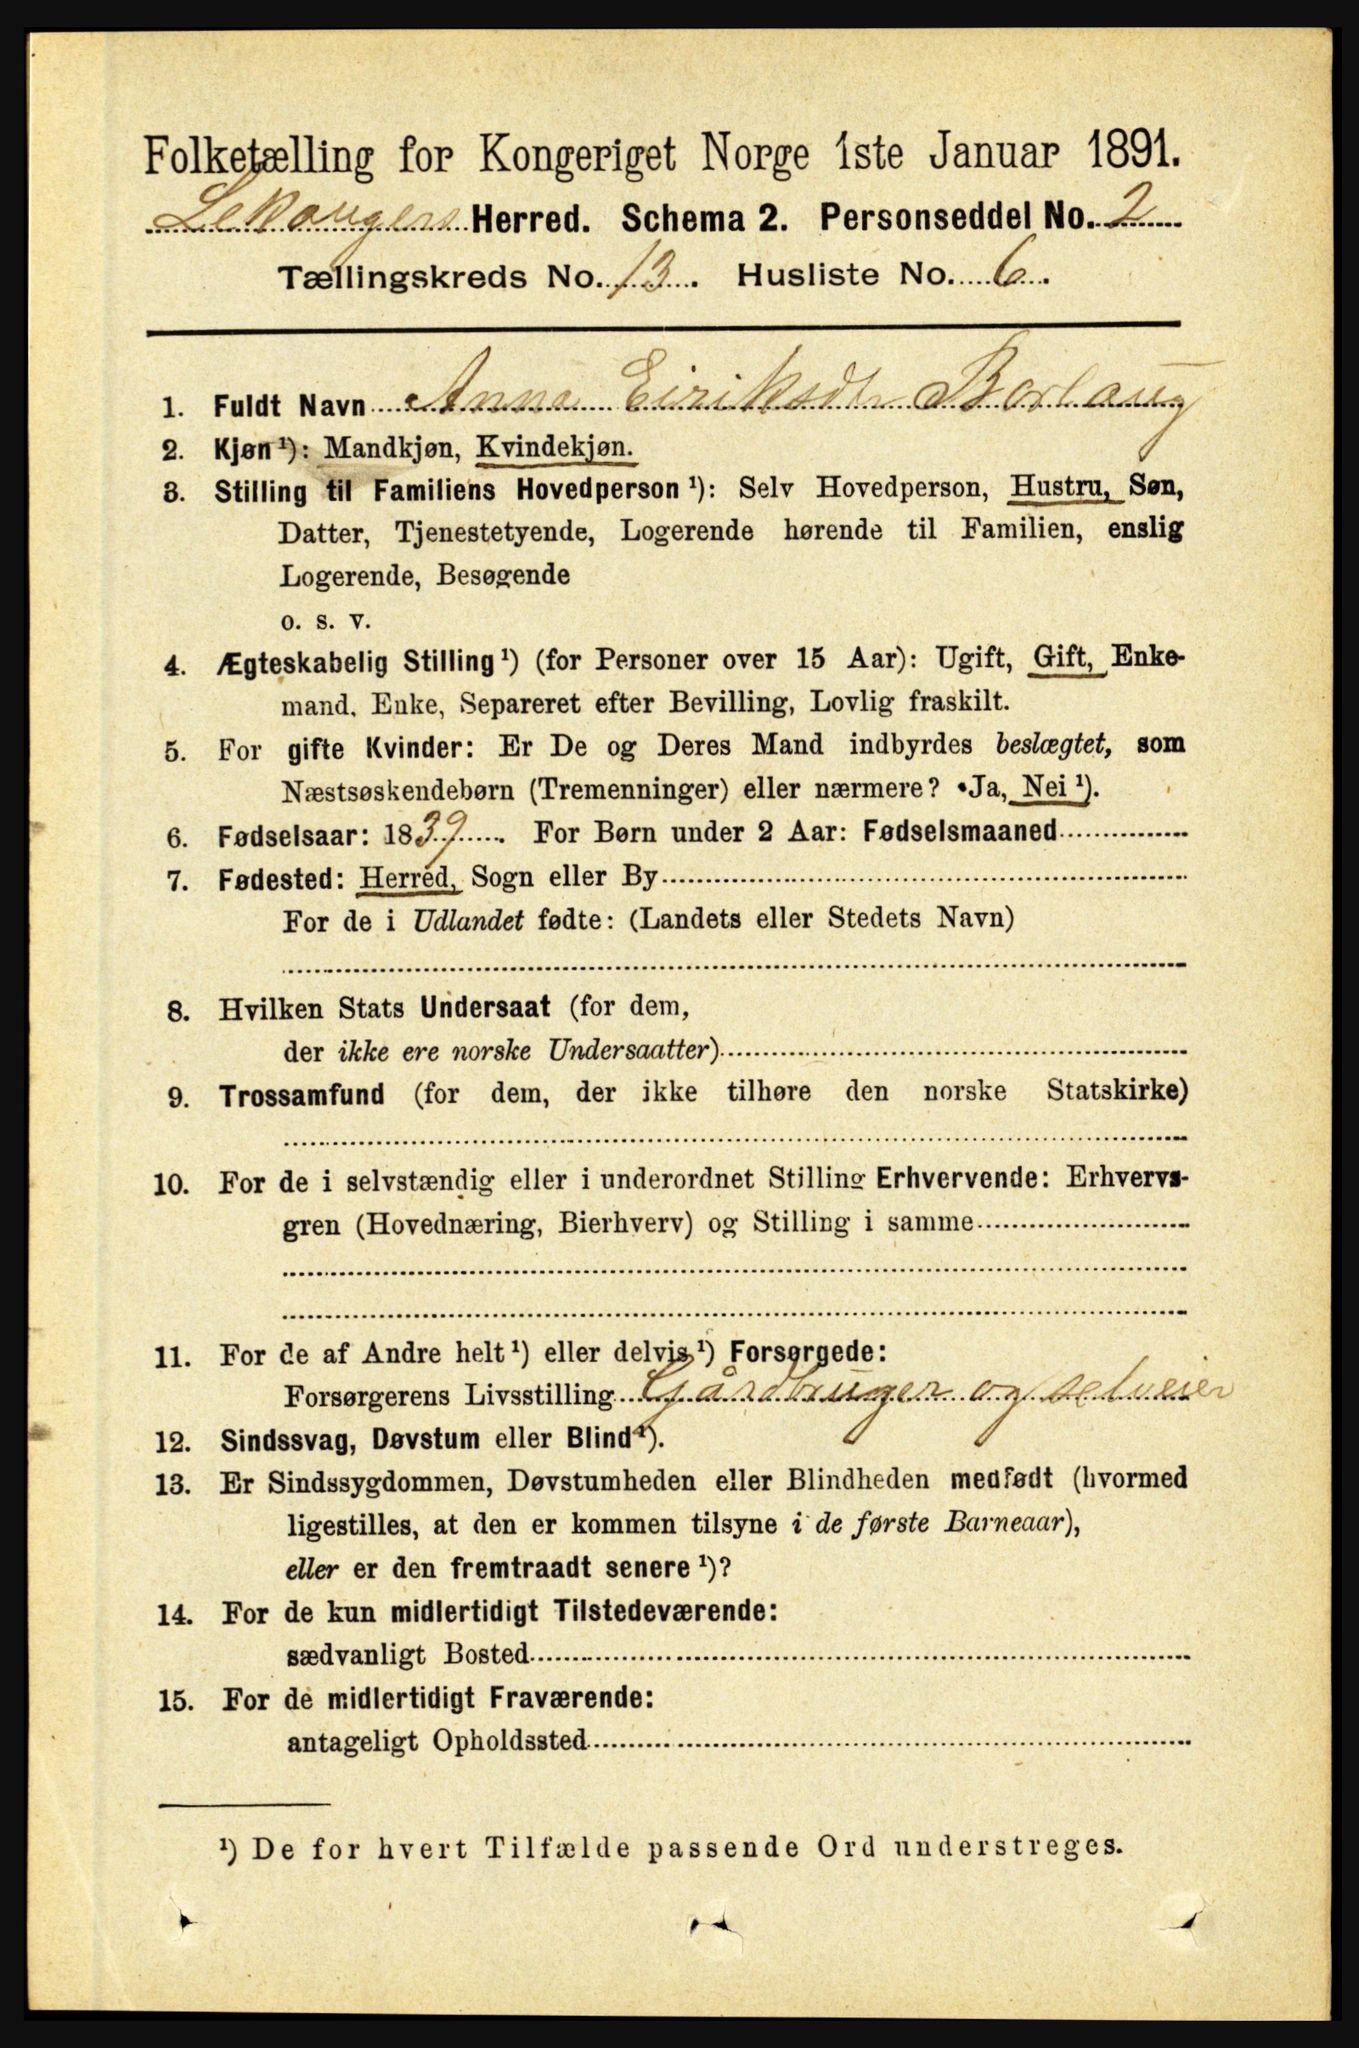 Folketælling for Kongeriget Norge 1ste Januar 1891.
Lekangers Herred. Schema 2. Personseddel No. 2
Tællingskreds No. 13. Husliste No. 6.
1. Fuldt Navn Anna Eiriksdtr Borlaug
2. Kjøn¹): Mandkjøn, Kvindekjøn.
3. Stilling til Familiens Hovedperson¹): Selv Hovedperson, Hustru, Søn,
Datter, Tjenestetyende, Logerende hørende til Familien, enslig
Logerende, Besøgende
o. s. v.
4. Ægteskabelig Stilling¹) (for Personer over 15 Aar): Ugift, Gift, Enke-
mand, Enke, Separeret efter Bevilling, Lovlig fraskilt.
5. For gifte Kvinder: Er De og Deres Mand indbyrdes beslægtet, som
Næstsøskendebørn (Tremenninger) eller nærmere? Ja, Nei¹).
6. Fødselsaar: 1839. For Børn under 2 Aar: Fødselsmaaned
7. Fødested: Herred, Sogn eller By
For de i Udlandet fødte: (Landets eller Stedets Navn)
8. Hvilken Stats Undersaat (for dem,
der ikke ere norske Undersaatter)
9. Trossamfund (for dem, der ikke tilhøre den norske Statskirke)
10. For de i selvstændig eller i underordnet Stilling Erhvervende: Erhvervs-
gren (Hovednæring, Bierhverv) og Stilling i samme
11. For de af Andre helt¹) eller delvis¹) Forsørgede:
Forsørgerens Livsstilling Gårdbruger og selveier
12. Sindssvag, Døvstum eller Blind¹).
13. Er Sindssygdommen, Døvstumheden eller Blindheden medfødt (hvormed
ligestilles, at den er kommen tilsyne i de første Barneaar),
eller er den fremtraadt senere¹)?
14. For de kun midlertidigt Tilstedeværende:
sædvanligt Bosted
15. For de midlertidigt Fraværende:
antageligt Opholdssted
¹) De for hvert Tilfælde passende Ord understreges.